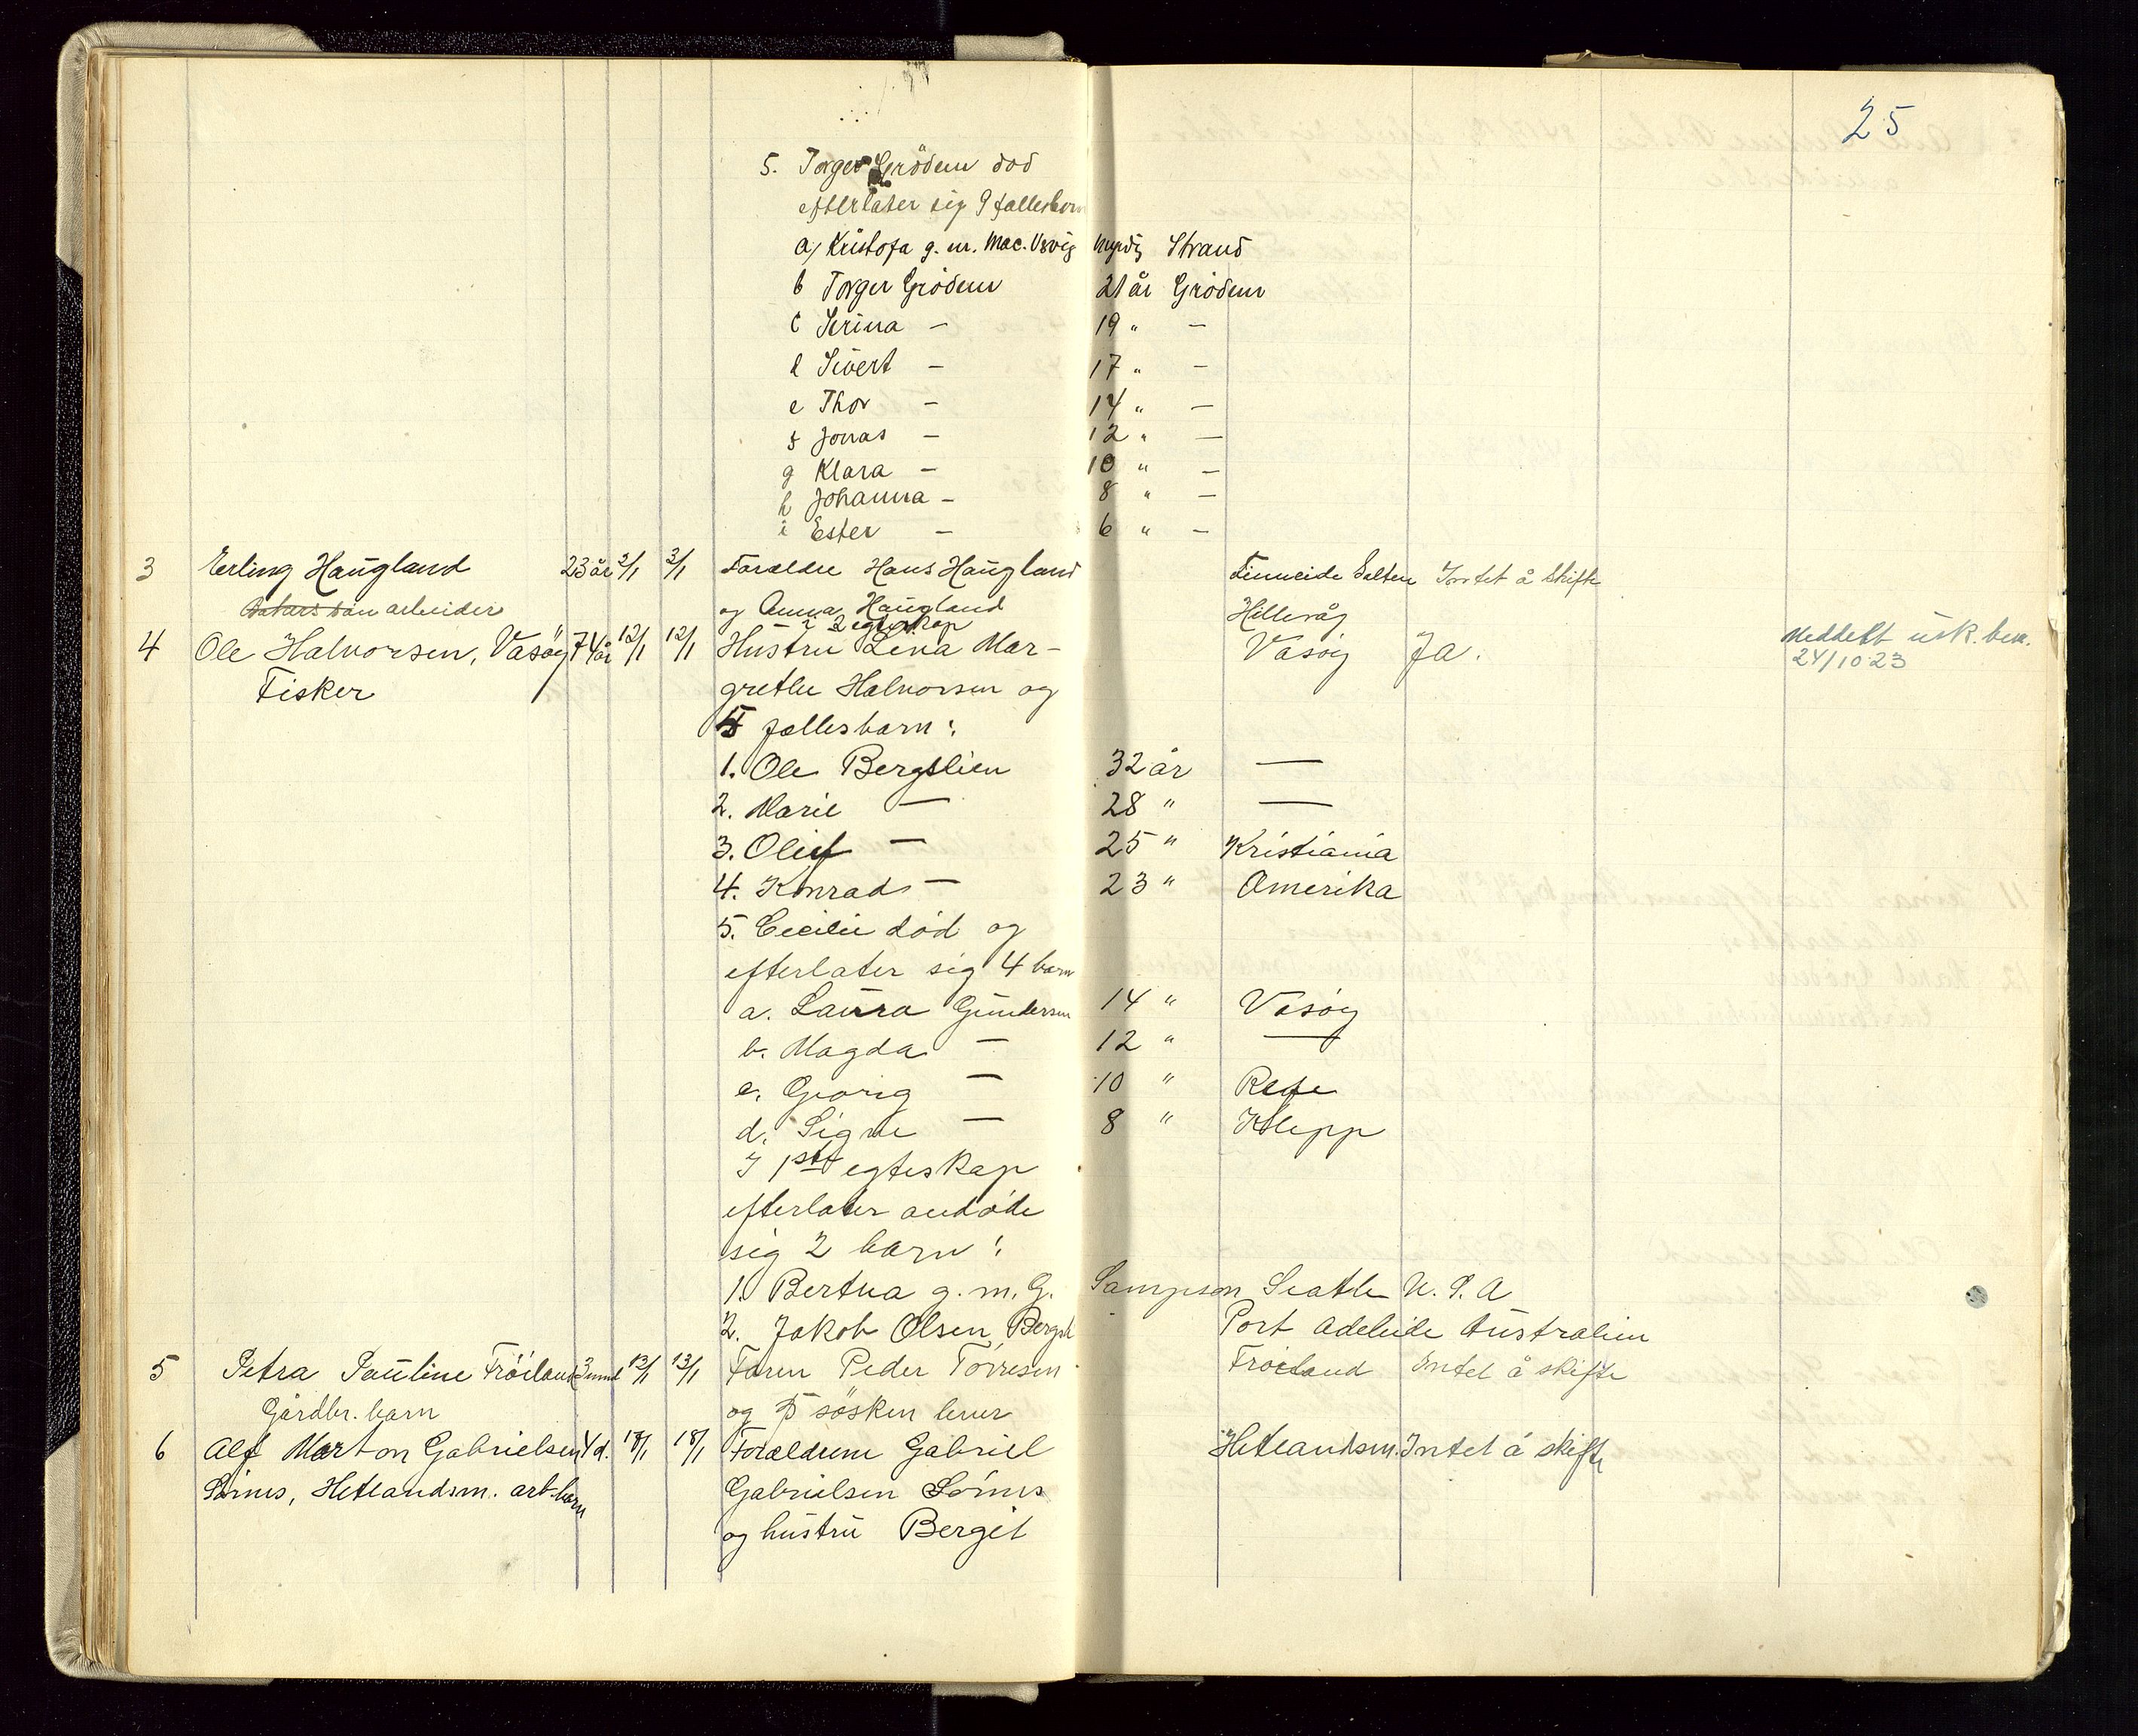 25
5. Torger Grödem död
efterlater sig 9 fællesbarn
a, Kristofa g. m. Mac. Usvig myndig Strand
b Torger Grödem 21 år Grödem
c Serina — 19 " —
d Sivert — 17 " —
e Thor — 14 " —
f Jonas — 12 " —
g Klara — 10 " —
h Johanna — 8 " —
i Ester — 6 " —
3 Erling Haugland 23 år 3/1 3/1 Forældre Hans Haugland Finneide Salten Intet å skifte
arbeider og Anna Haugland Hillevåg
i 2 egteskap
4 Ole Halvorsen, Vasöy 74 år 12/1 12/1 Hustru Lena Mar- Vasöy Ja. Meddelt usk. bev.
24/10 23
Fisker grethe Halvorsen og
5 fællesbarn:
1. Ole Bergslien 32 år —
2. Marie — 28 " —
3. Oluf — 25 " Kristiania
4. Konrad — 23 " Amerika
5. Cecilie död og
efterlater sig 4 barn
a. Laura Gundersen 14 " Vasöy
b. Magda — 12 " —
c. Georg — 10 " Rege
d. Signe — 8 " Klepp
I 1ste egteskap
efterlater avdöde
sig 2 barn:
1. Bertha g. m. G. Sampson Seatle U. S. A
2. Jakob Olsen Bergsl Port Adeleide Australien
5 Petra Pauline Fröiland 3 mnd 13/1 13/1 Faren Peder Törresen Fröiland Intet å skifte
Gårdbr. barn og 5 sösken lever
6 Alf Marton Gabrielsen 4 d. 18/1 18/1 Forældrene Gabriel Hetlandsm. Intet å skifte
Sörnes, Hetlandsm. arb. barn Gabrielsen Sörnes
og hustru Bergit